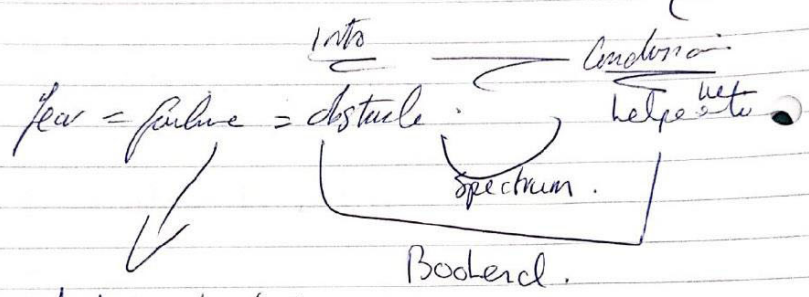 Intro Conclusion
fear = failure = obstacle. helpe
Spectrum.
Bookend.